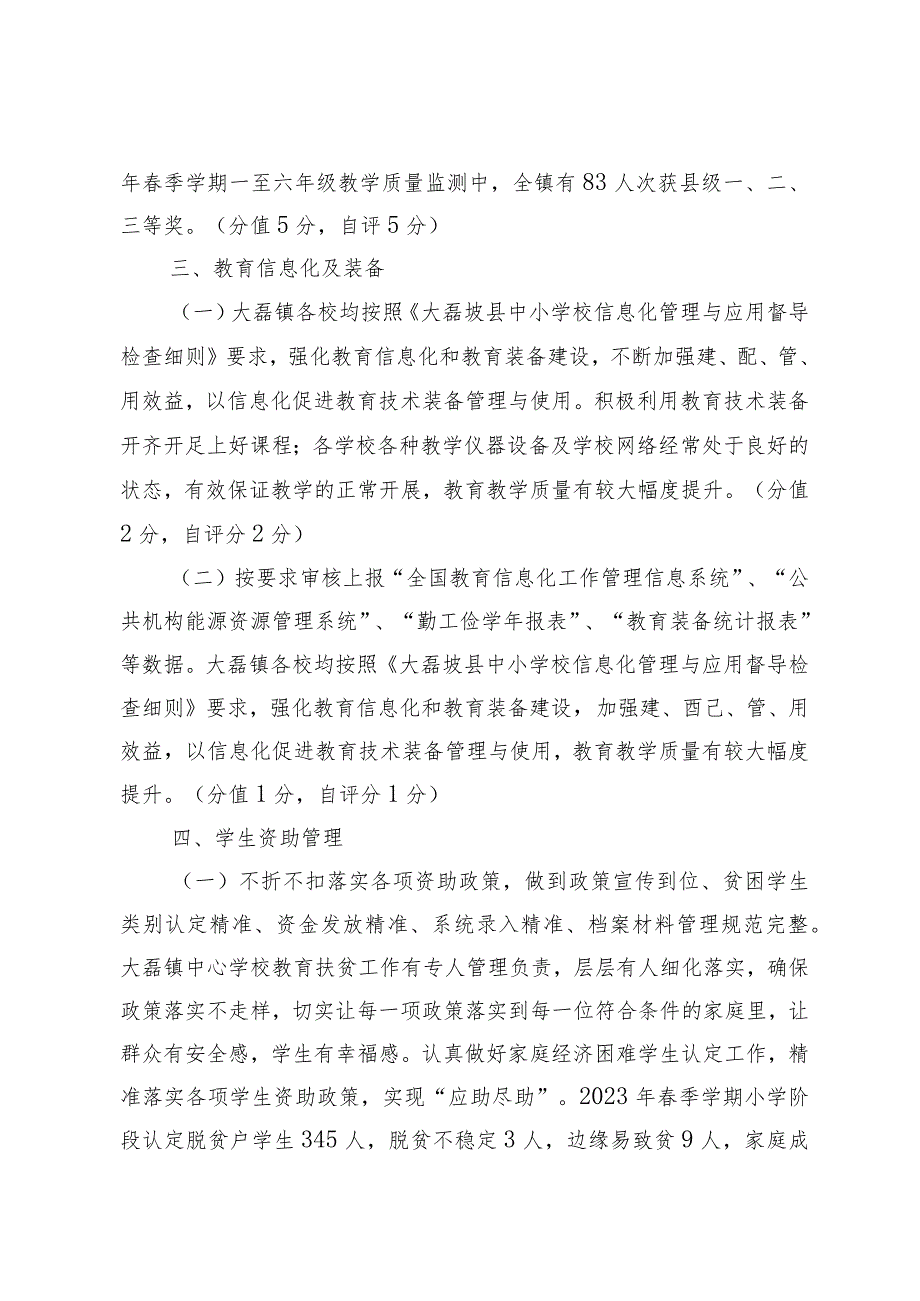 年春季学期一至六年级教学质量监测中，全镇有 83 人次获县级一、二、
三等奖。（分值 5 分，自评 5 分）
三、教育信息化及装备
（一）大磊镇各校均按照《大磊坡县中小学校信息化管理与应用督导
检查细则》要求，强化教育信息化和教育装备建设，不断加强建、配、管、
用效益，以信息化促进教育技术装备管理与使用。积极利用教育技术装备
开齐开足上好课程；各学校各种教学仪器设备及学校网络经常处于良好的
状态，有效保证教学的正常开展，教育教学质量有较大幅度提升。（分值
2 分，自评分 2 分）
（二）按要求审核上报“全国教育信息化工作管理信息系统”、“公
共机构能源资源管理系统”、“勤工俭学年报表”、“教育装备统计报表”
等数据。大磊镇各校均按照《大磊坡县中小学校信息化管理与应用督导检
查细则》要求，强化教育信息化和教育装备建设，加强建、酉己、管、用
效益，以信息化促进教育技术装备管理与使用，教育教学质量有较大幅度
提升。（分值 1 分，自评分 1 分）
四、学生资助管理
（一）不折不扣落实各项资助政策，做到政策宣传到位、贫困学生
类别认定精准、资金发放精准、系统录入精准、档案材料管理规范完整。
大磊镇中心学校教育扶贫工作有专人管理负责，层层有人细化落实，确保
政策落实不走样，切实让每一项政策落实到每一位符合条件的家庭里，让
群众有安全感，学生有幸福感。认真做好家庭经济困难学生认定工作，精
准落实各项学生资助政策，实现“应助尽助”。2023 年春季学期小学阶
段认定脱贫户学生 345 人，脱贫不稳定 3 人，边缘易致贫 9 人，家庭成